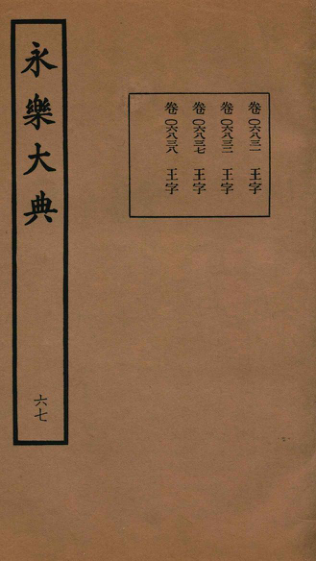 永樂大典
六七
卷〇六八三一 王字
卷〇六八三二 王字
卷〇六八三七 王字
卷〇六八三八 王字